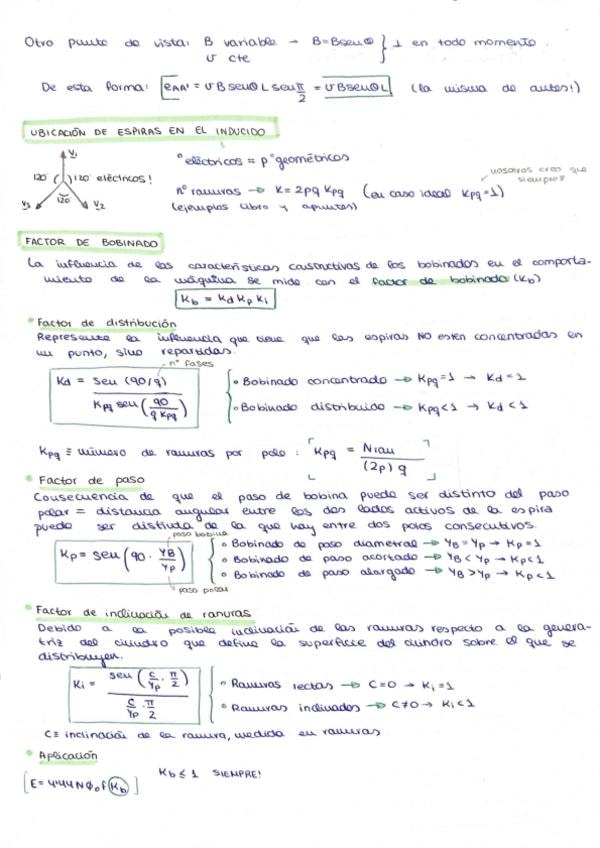 Otro punto de vista: B variable → B=Bsenθ } ⊥ en todo momento.
v cte
De esta forma: e_AA' = v B senθ L sen π/2 = v B senθ L (la misma de antes!)
UBICACIÓN DE ESPIRAS EN EL INDUCIDO
Y1
120 120 eléctricos!
120
Y3 Y2
° eléctricos = p ° geométricos
nosotros creo que siempre!!
nº ranuras → K = 2pq Kpq (en caso ideal Kpq = 1)
(ejemplos libro y apuntes)
FACTOR DE BOBINADO
La influencia de las características constructivas de los bobinados en el comporta-
miento de la máquina se mide con el factor de bobinado (Kb)
Kb = Kd Kp Ki
• Factor de distribución
Representa la influencia que tiene que las espiras NO estén concentradas en
un punto, sino repartidas.
nº fases
Kd = sen (90/q) / Kpq sen (90 / q Kpq)
• Bobinado concentrado → Kpq = 1 → Kd = 1
• Bobinado distribuido → Kpq < 1 → Kd < 1
Kpq ≡ número de ranuras por polo : Kpq = Nran / (2p) q
• Factor de paso
Consecuencia de que el paso de bobina puede ser distinto del paso
polar = distancia angular entre los dos lados activos de la espira
puede ser distinta de la que hay entre dos polos consecutivos.
paso bobina
Kp = sen (90 · YB / Yp)
paso polar
• Bobinado de paso diametral → YB = Yp → Kp = 1
• Bobinado de paso acortado → YB < Yp → Kp < 1
• Bobinado de paso alargado → YB > Yp → Kp < 1
• Factor de inclinación de ranuras
Debido a la posible inclinación de las ranuras respecto a la genera-
triz del cilindro que define la superficie del cilindro sobre el que se
distribuyen.
Ki = sen (C/Yp · π/2) / C/Yp · π/2
• Ranuras rectas → C=0 → Ki = 1
• Ranuras inclinadas → C≠0 → Ki < 1
C ≡ inclinación de la ranura, medida en ranuras
• Aplicación
[E = 4'44 N Φo f Kb] Kb ≤ 1 SIEMPRE!